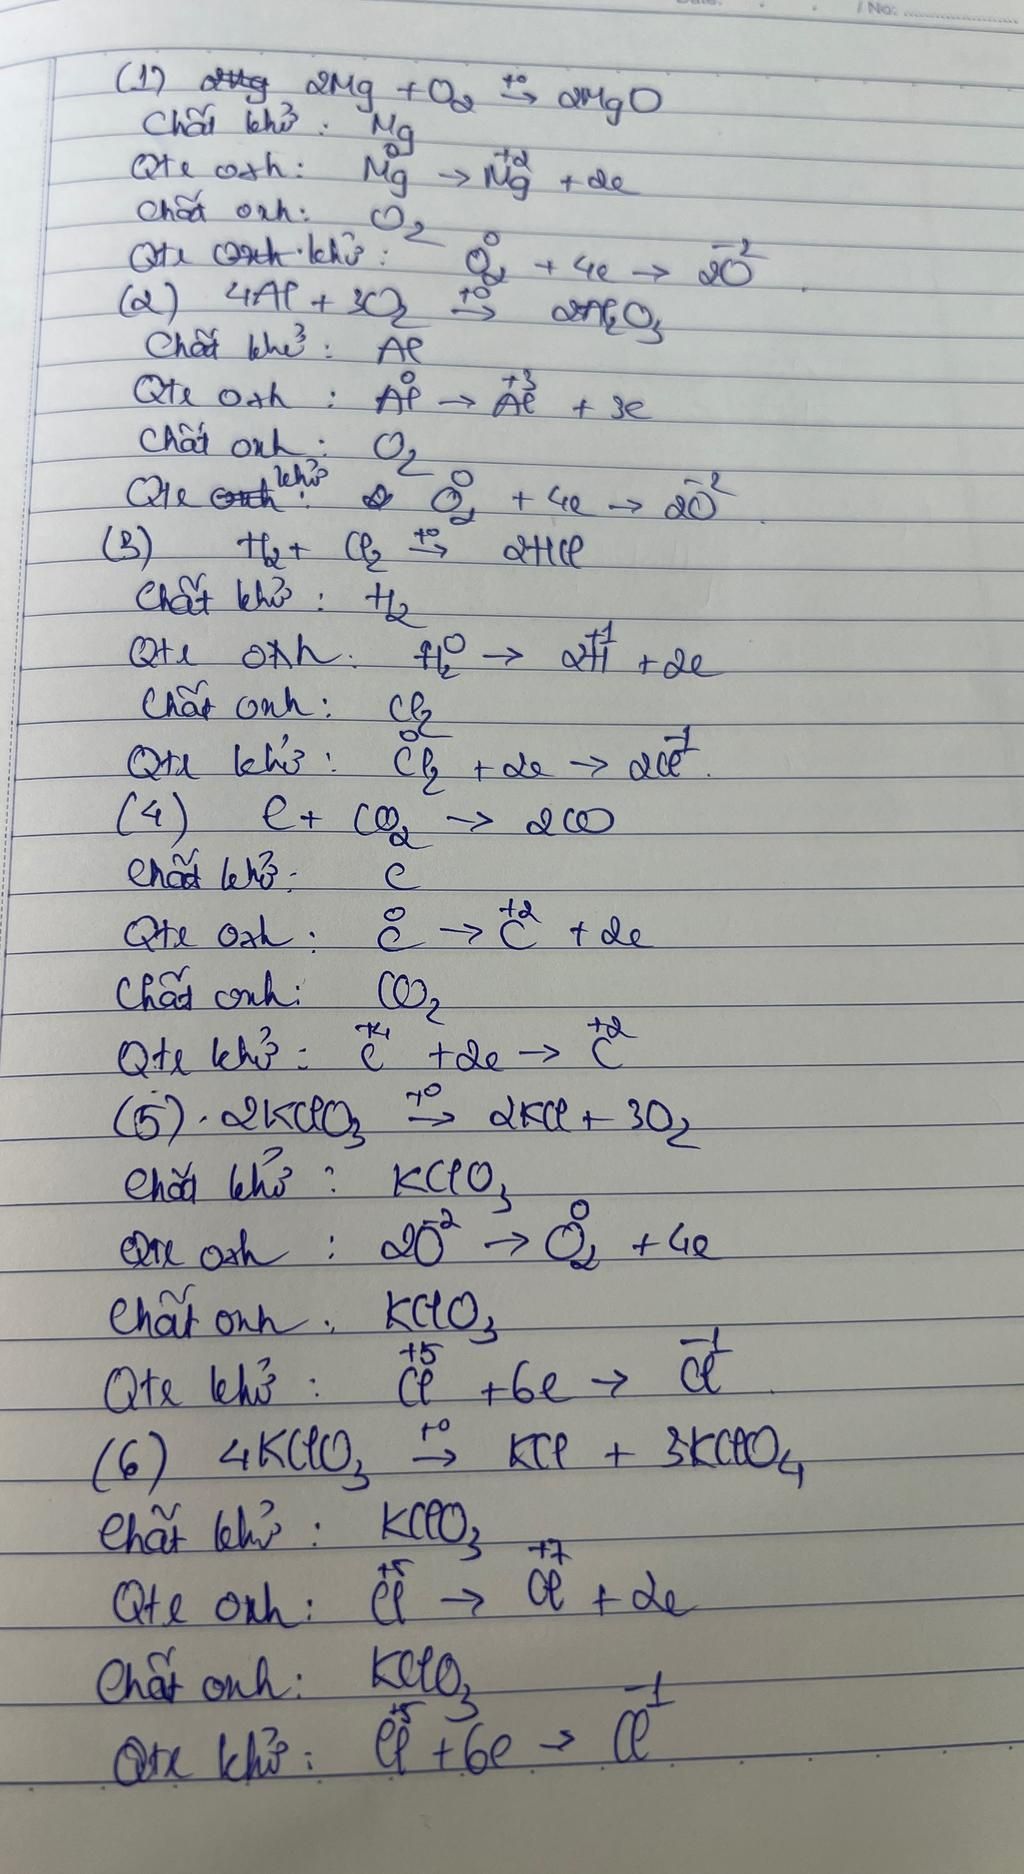 / No:
(1) 2Mg + O₂ →(t⁰) 2MgO
Chất khử : Mg
Qtr oxh : Mg⁰ → Mg⁺² + 2e
Chất oxh : O₂
Qtr khử : O₂⁰ + 4e → 2O⁻²
(2) 4Al + 3O₂ →(t⁰) 2Al₂O₃
Chất khử : Al
Qtr oxh : Al⁰ → Al⁺³ + 3e
Chất oxh : O₂
Qtr khử : O₂⁰ + 4e → 2O⁻²
(3) H₂ + Cl₂ →(t⁰) 2HCl
Chất khử : H₂
Qtr oxh : H₂⁰ → 2H⁺¹ + 2e
Chất oxh : Cl₂
Qtr khử : Cl₂⁰ + 2e → 2Cl⁻¹.
(4) C + CO₂ → 2CO
Chất khử : C
Qtr oxh : C⁰ → C⁺² + 2e
Chất oxh : CO₂
Qtr khử : C⁺⁴ + 2e → C⁺²
(5). 2KClO₃ →(t⁰) 2KCl + 3O₂
Chất khử : KClO₃
Qtr oxh : 2O⁻² → O₂⁰ + 4e
Chất oxh : KClO₃
Qtr khử : Cl⁺⁵ + 6e → Cl⁻¹.
(6) 4KClO₃ →(t⁰) KCl + 3KClO₄
Chất khử : KClO₃
Qtr oxh : Cl⁺⁵ → Cl⁺⁷ + 2e
Chất oxh : KClO₃
Qtr khử : Cl⁺⁵ + 6e → Cl⁻¹